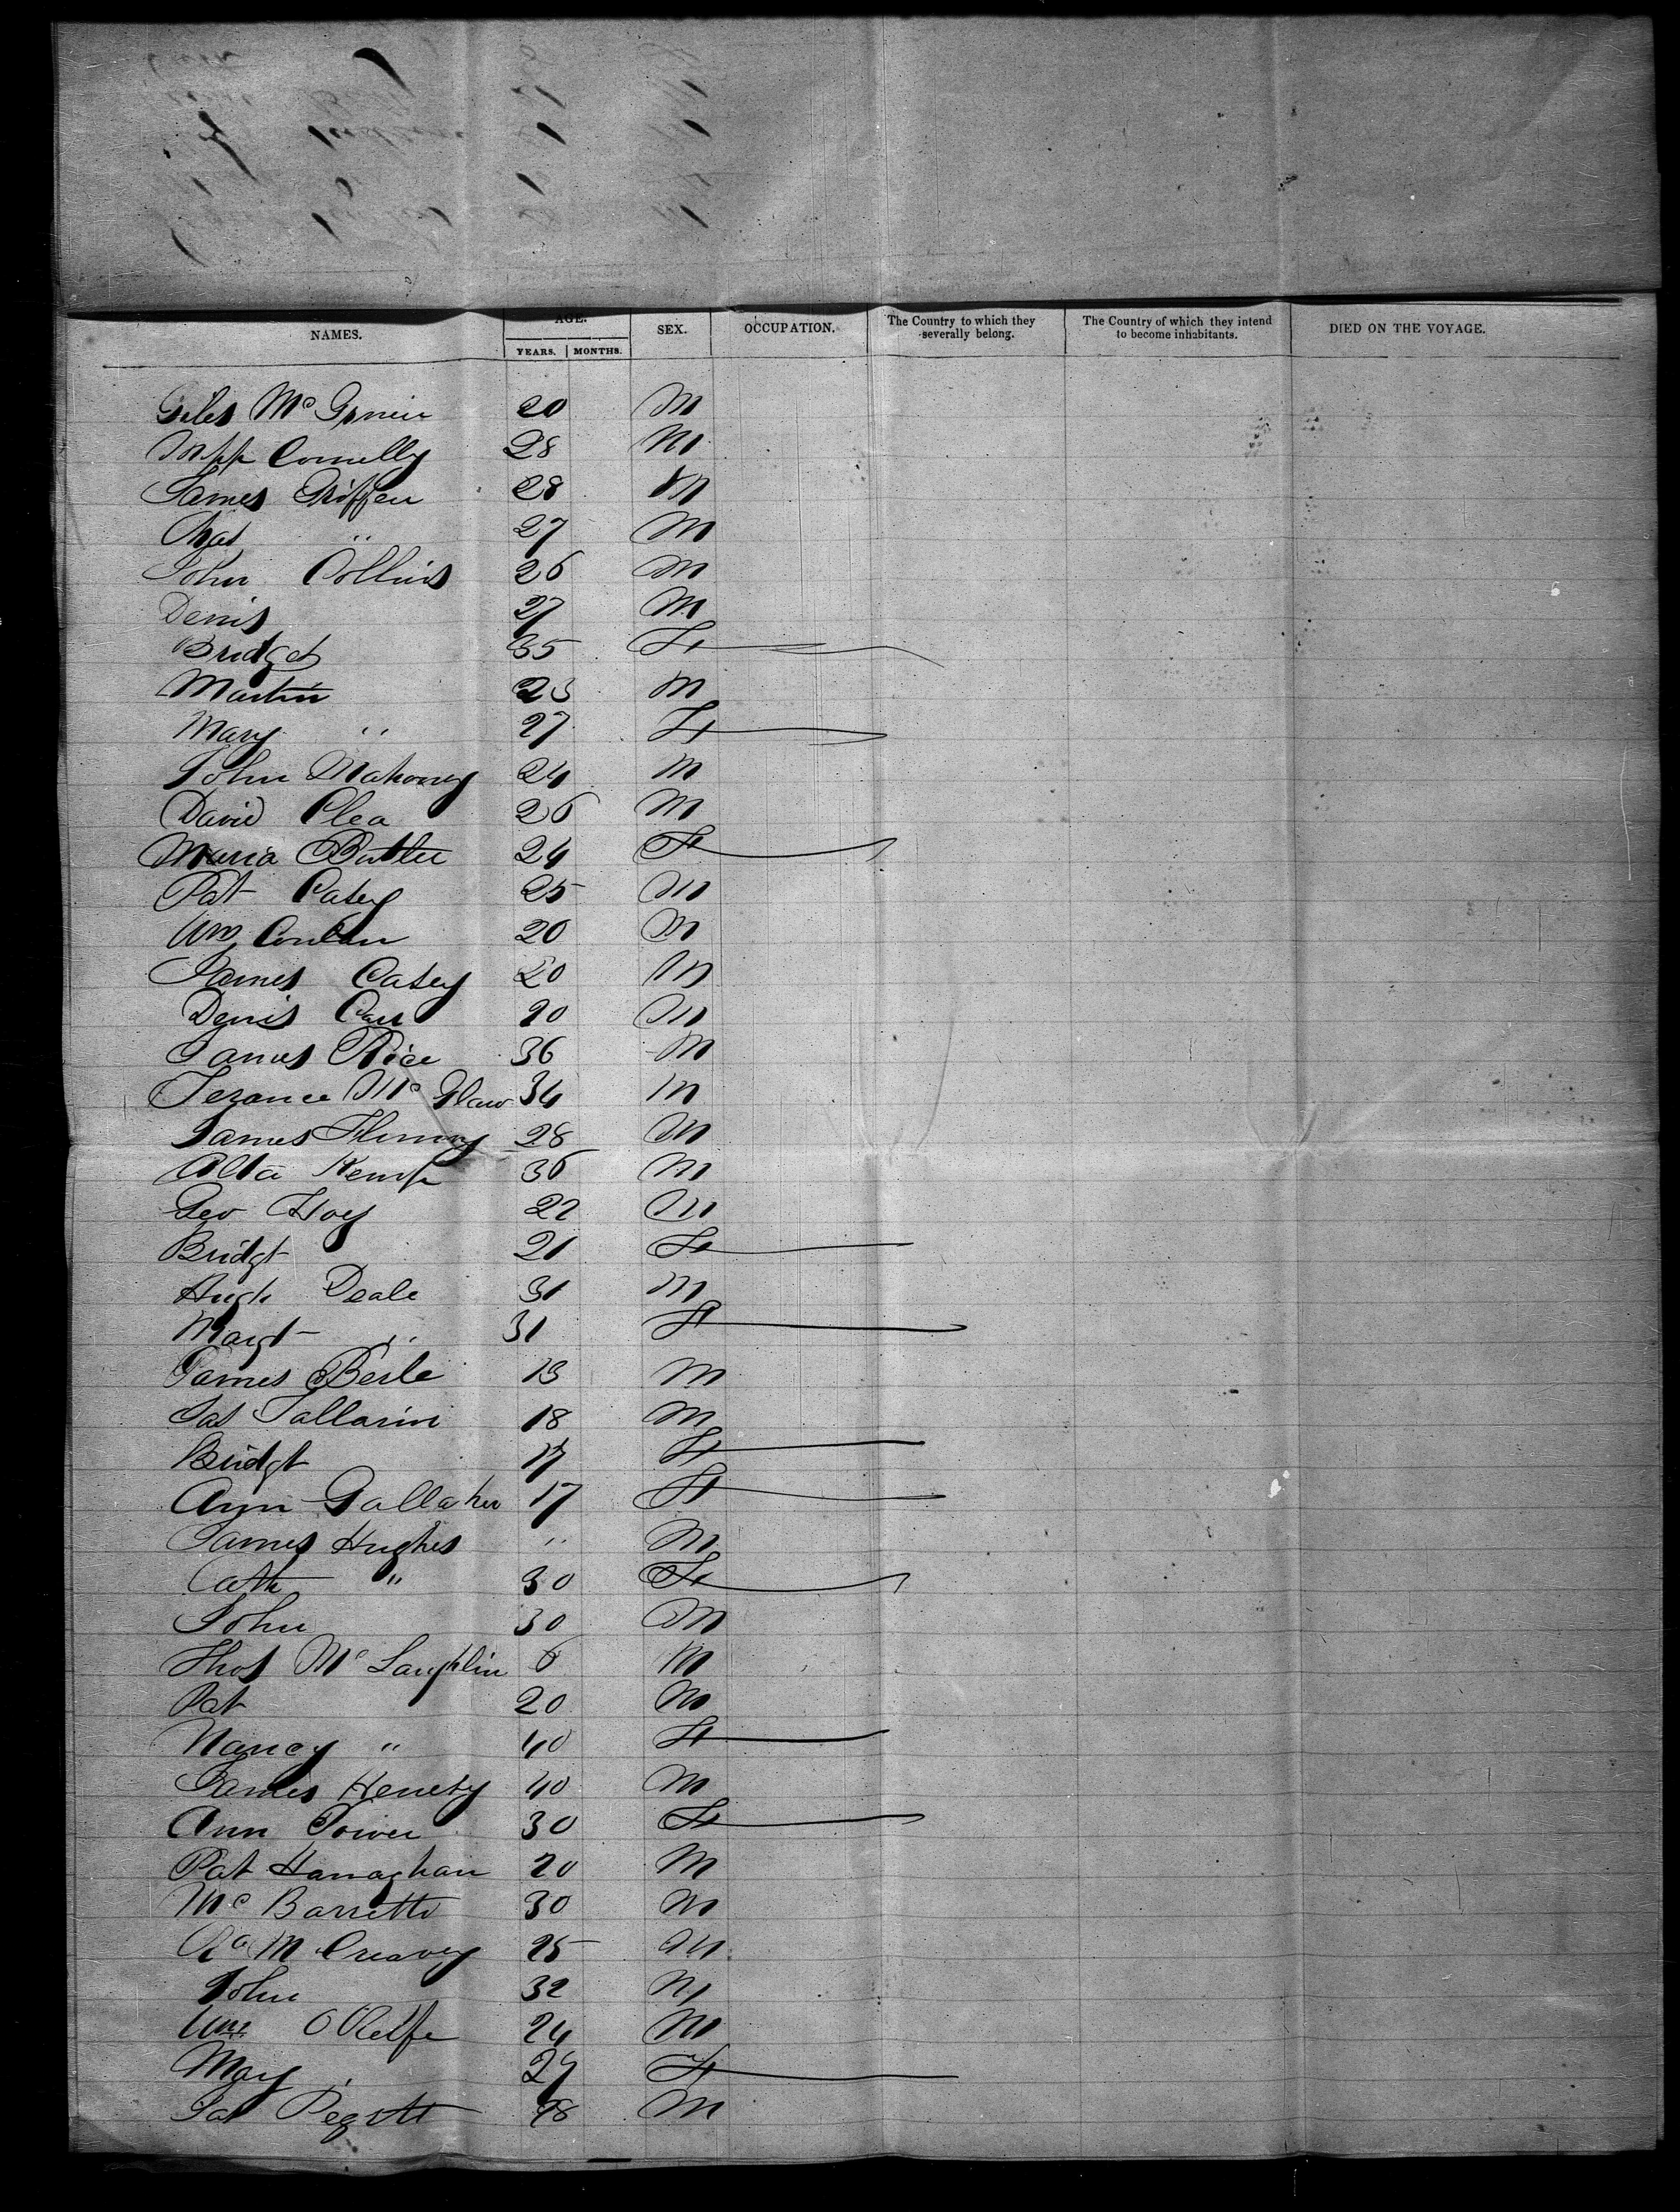 NAMES. AGE. YEARS. MONTHS. SEX. OCCUPATION. The Country to which they severally belong. The Country of which they intend to become inhabitants. DIED ON THE VOYAGE.
Giles Mc 20 M
Connelly 28 M
James Griffen 28 M
Chas " 27 M
John Collins 26 M
Denis 27 M
Bridget 35 F
Martin 23 M
Mary " 27 F
John Mahoney 24 M
David Clea 26 M
Maria Butler 24 F
Pat Casey 25 M
Wm Conlan 20 M
James Casey 20 M
Denis Carr 20 M
James Rice 36 M
Terance Mc 34 M
James 28 M
36 M
Geo Hoey 22 M
Bridgt 21 F
Hugh Deale 31 M
Margt " 31 F
James Berle 13 M
Jas Tallarin 18 M
Bridgt 17 F
Ann Gallaher 17 F
James Hughes " M
Cath " 30 F
John 30 M
Thos McLaughlin 6 M
Pat 20 M
Nancy " 40 F
James Henety 40 M
Ann Power 30 F
Pat Hanaghan 20 M
Mc Barrett 30 M
M Creavey 25 M
John 32 M
Wm O Keffe 24 M
Mary 27 F
Pat 48 M